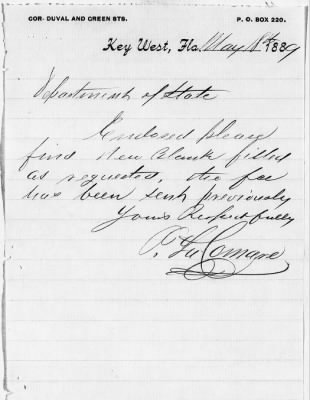 COR. DUVAL AND GREEN STS. P. O. BOX 220.
Key West, Fla. May 18th 1889
Department of State
Enclosed please
find new blank filled
as requested, the fee
has been sent previously
Yours Respectfully